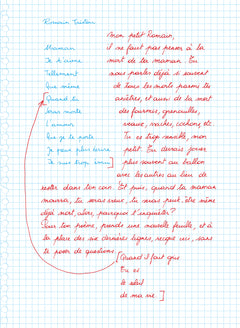 Romain Tristan
Maman
Je t'aime
Tellement
Que même
[Quand tu
seras morte
L'amour
Que je te porte
Je peux plus écrire
Je suis trop ému]
mon petit Romain,
il ne faut pas penser à la
mort de ta maman. Tu
nous parles déjà si souvent
de tous les morts parmi tes
ancêtres, et aussi de la mort
des fourmis, grenouilles,
veaux, vaches, cochons, etc.
Tu es trop sensible, mon
petit. Tu devrais jouer
plus souvent au ballon
avec les autres au lieu de
rester dans ton coin. Et puis, quand ta maman
mourra, tu seras vieux, tu seras peut-être même
déjà mort, alors, pourquoi t'inquiéter?
Pour ton poème, prends une nouvelle feuille, et à
la place des six dernières lignes, recopie ceci, sans
te poser de questions.
[Quand il fait gris
Tu es
le soleil
de ma vie]